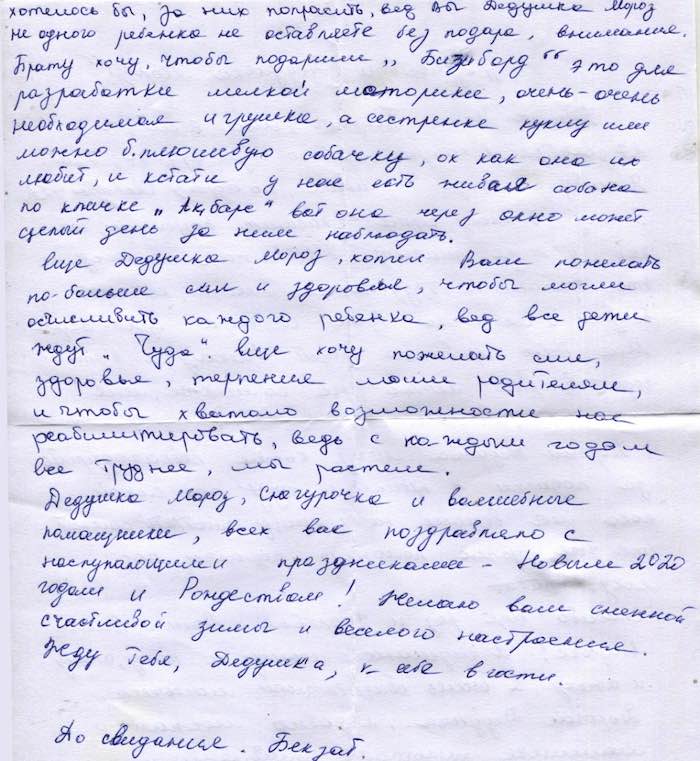 хотелось бы, за них попрасить, вед Вы Дедушка Мороз
не одного ребенка не оставляете без подаре, внимание.
Брату хочу, чтобы подарили „Бизиборд“ это для
разработке мелкой моторике, очень-очень
необходимая игрушка, а сестренке куклу или
можно б.плюшевую собачку, ох как она их
любит, и кстати у нас есть живая собака
по кличке „Ақбарс“ вот она через окно может
целый день за ними наблюдать.
Еще Дедушка Мороз, хотел Вам пожелать
по-больше сил и здоровья, чтобы могли
осчасливить каждого ребенка, вед все дети
ждут „Чуда“. Еще хочу пожелать сил,
здоровье, терпение моим родителям,
и чтобы хватало возможности нас
реабилитировать, ведь с каждым годом
все труднее, мы растем.
Дедушка Мороз, Снегурочка и волшебные
помащники, всех вас поздравляю с
наступающими праздниками - Новым 2020
годом и Рождеством! Желаю вам снежной
счастливой зимы и веселого настроения.
Жду Тебя, Дедушка, к себе в гости.
До свидания. Бекзат.